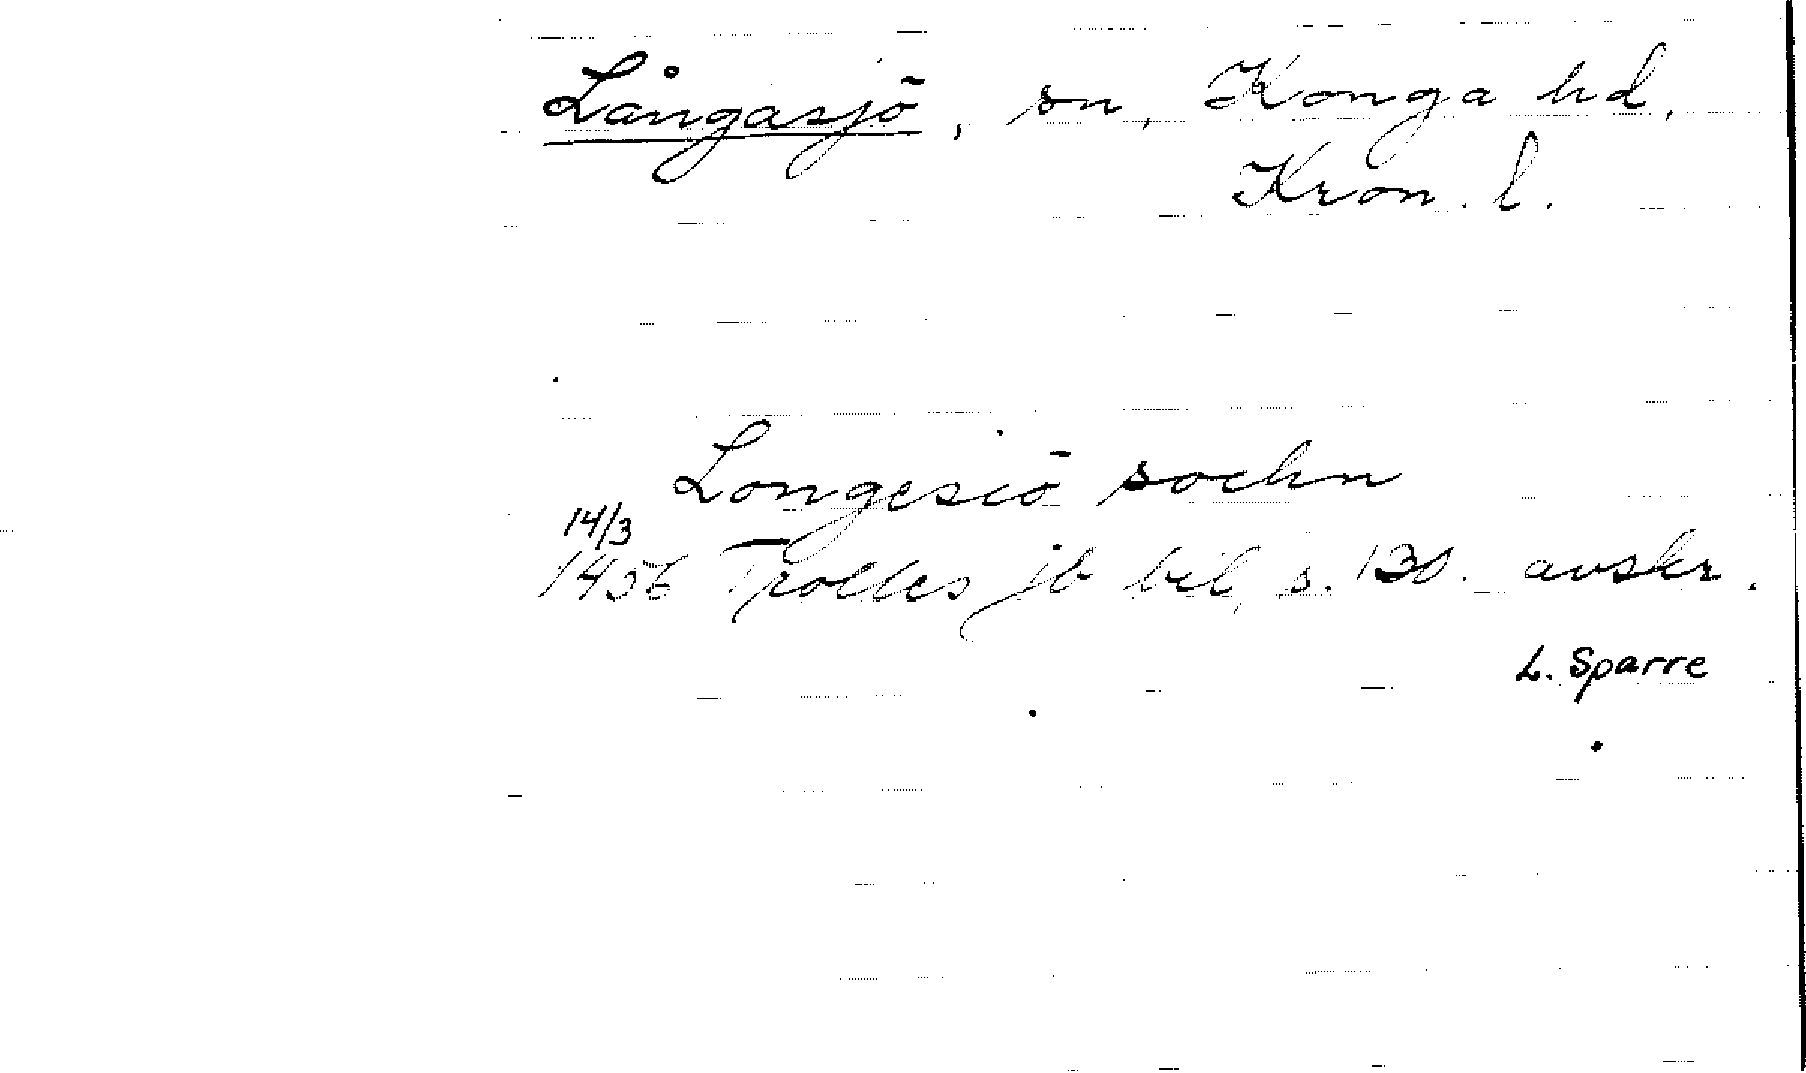 Långasjö, sn, Konga hd,
Kron. l.
Longesiö sochn
14/3
1456 Trolles jb bil, s. 130. avskr.
L. Sparre